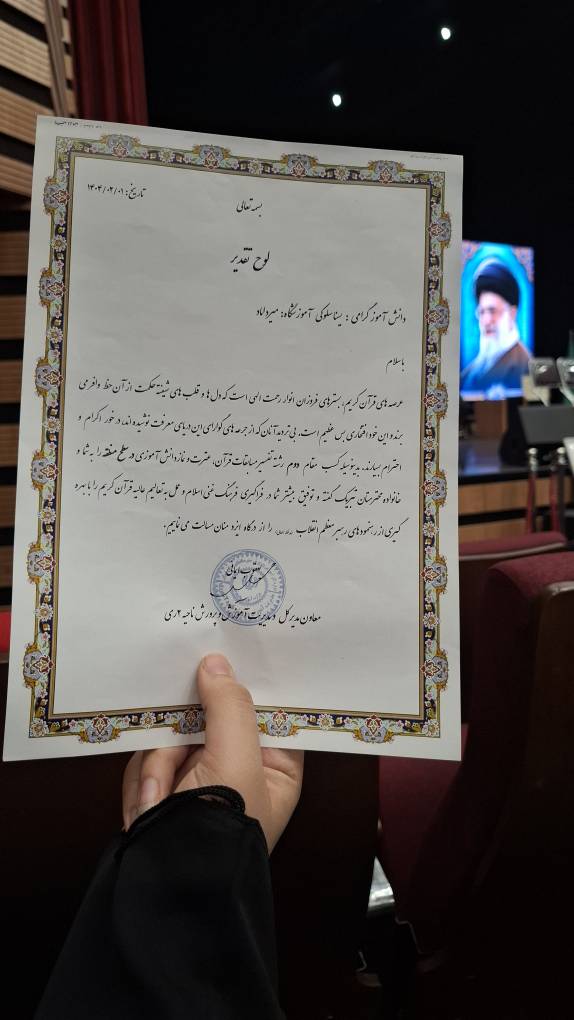 تاریخ: ۱۴۰۴/۰۲/۰۱
بسمه تعالی
لوح تقدیر
دانش آموز گرامی : یسنا سلوکی آموزشگاه: میرداماد
باسلام
عرصه های قرآن کریم، بسترهای فروزان انوار رحمت الهی است که دل ها و قلب های شیفته حکمت از آن حظ وافر می
برند و این خود افتخاری بس عظیم است، بی تردید آنان که از جرعه های گوارای این دریای معرفت نوشیده اند، در خور اکرام و
احترام بسیارند، بدینوسیله کسب مقام دوم رشته تفسیر مسابقات قرآن، عترت و نماز دانش آموزی در سطح منطقه را به شما و
خانواده محترمتان تبریک گفته و توفیق بیشتر شما در فراگیری فرهنگ غنی اسلام و عمل به تعالیم عالیه قرآن کریم را با بهره
گیری از رهنمودهای رهبر معظم انقلاب را از درگاه ایزد منان مسالت می نماییم.
معاون مدیر کل و مدیریت آموزش و پرورش ناحیه ۲ ری